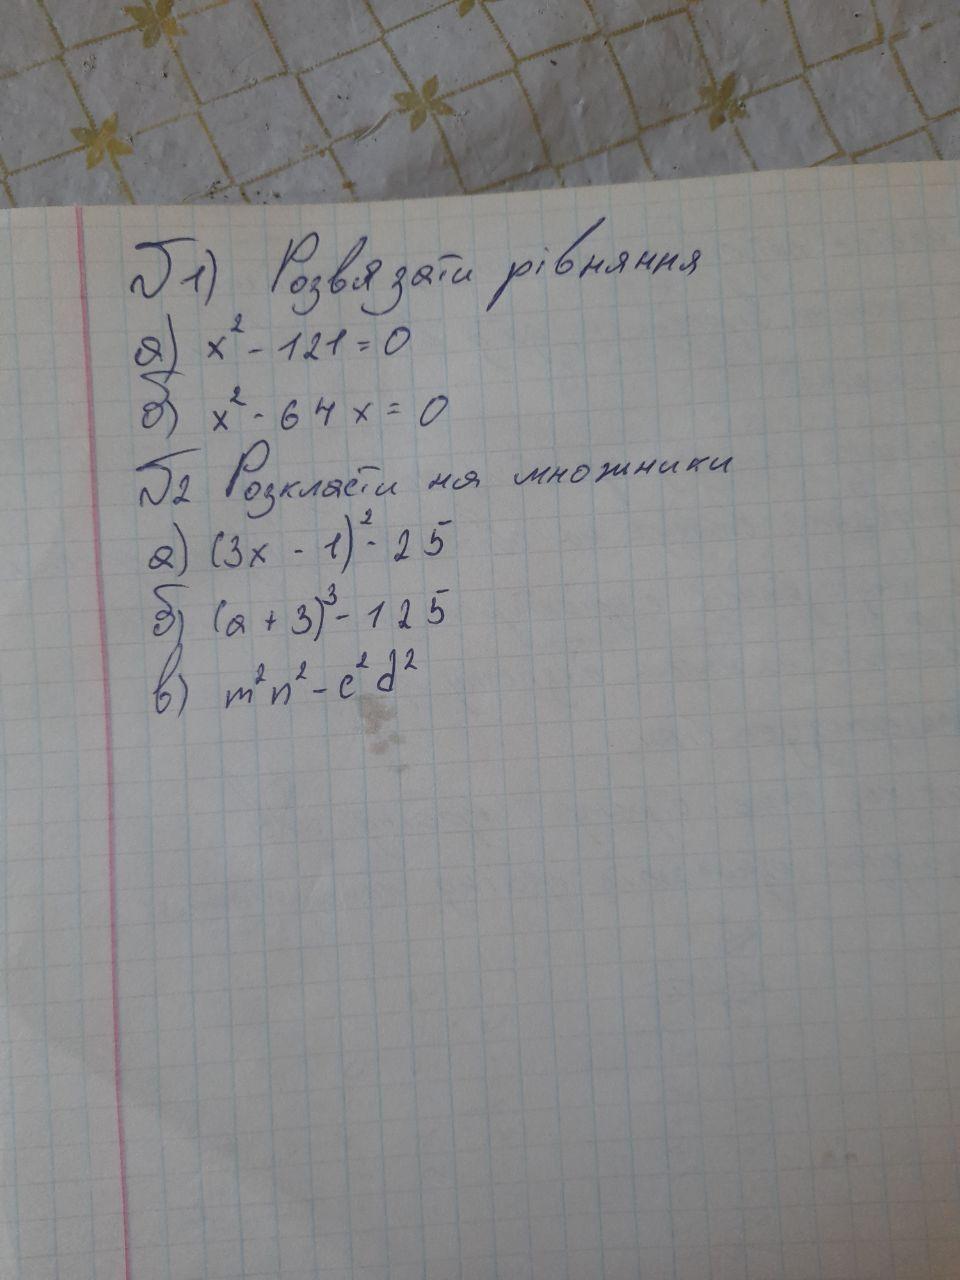 №1) Розвязати рівняння
а) x² - 121 = 0
б) x² - 64x = 0
№2 Розкласти на множники
а) (3x - 1)² - 25
б) (a + 3)³ - 125
в) m²n² - c²d²